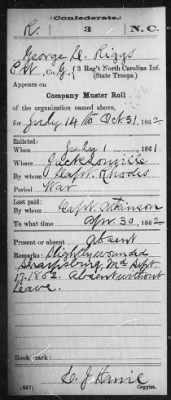 (Confederate.)
R. 3 N.C.
George D. Riggs
Pvt, Co. G, 3 Reg't North Carolina Inf.
(State Troops.)
Appears on
Company Muster Roll
of the organization named above,
for July 14 to Oct 31, 1862
Enlisted:
When July 1, 1861
Where Jacksonville
By whom Capt. Rhodes
Period War
Last paid:
By whom Capt. Atkinson
To what time Apr. 30, 1862
Present or absent Absent
Remarks: Slightly wounded
Sharpsburg, Md Sept.
17. 1862. Absent without
leave.
Book mark:
(627)
Copyist.